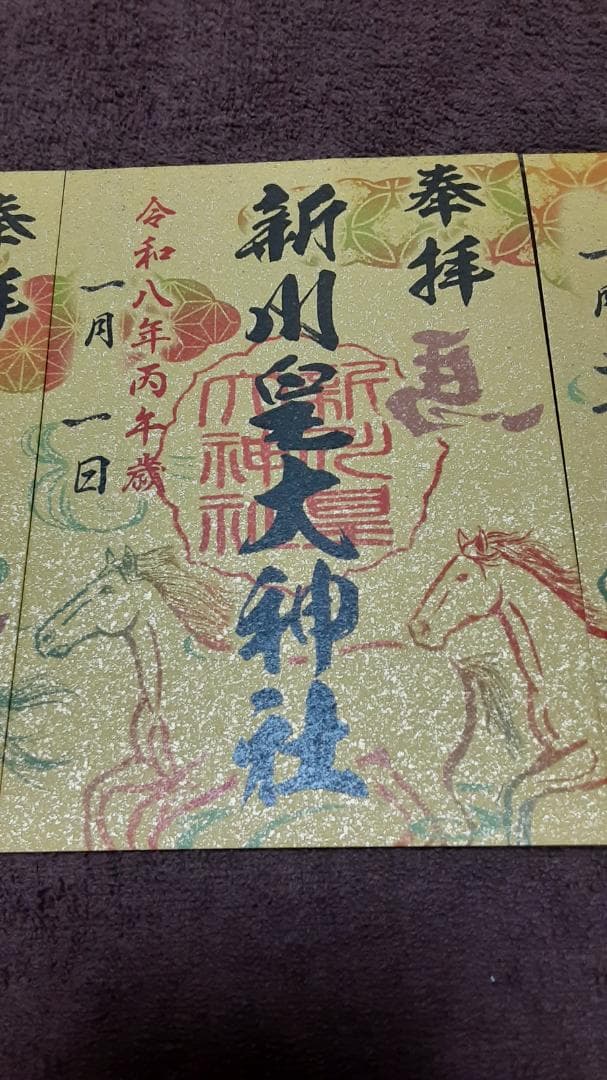 一月
奉拝
馬
新川皇大神社
新川皇
大神社
令和八年丙午歳
一月一日
奉拝